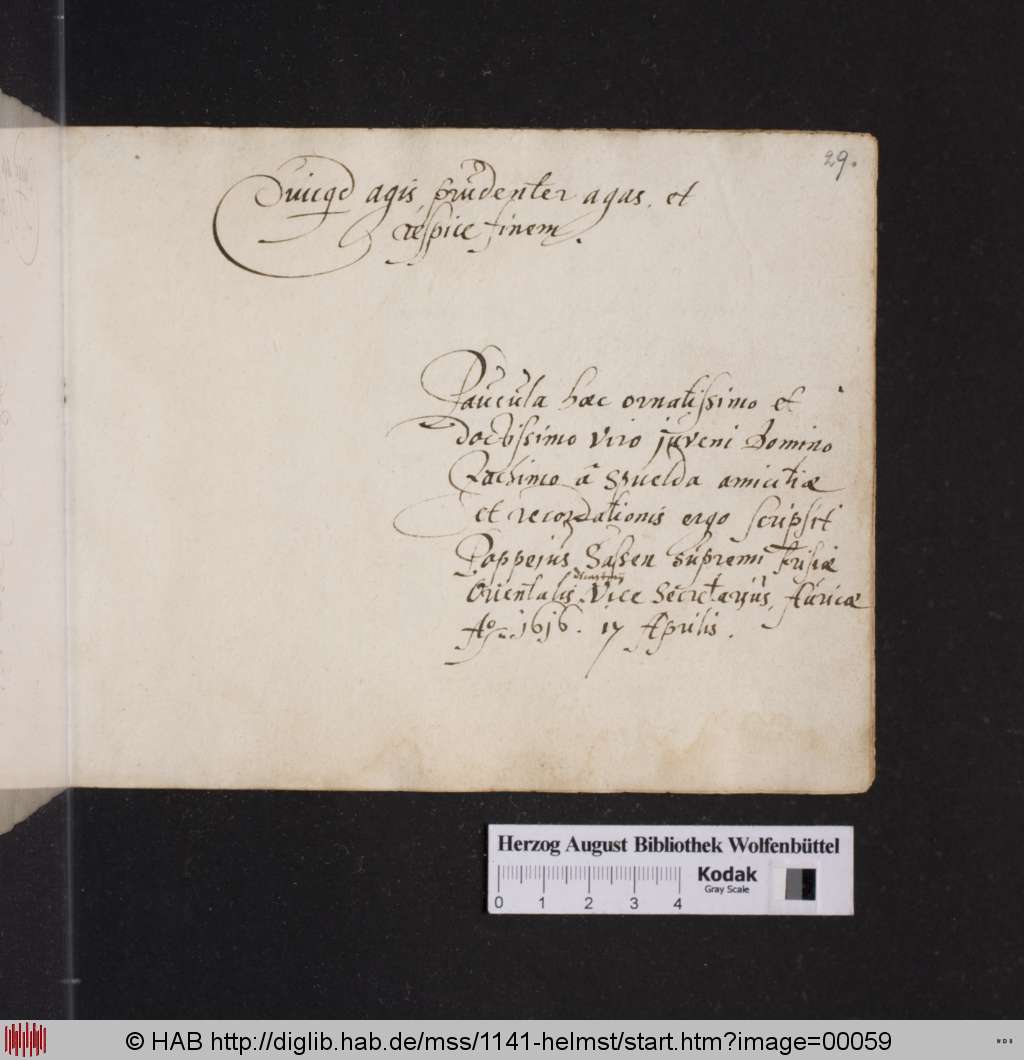 29.
Quicqd agis, prudenter agas, et
respice finem.
Paucula haec ornatissimo et
doctissimo viro juveni Domino
Joachimo à amicitiae
et recordationis ergo scripsit
Poppejus Sassen supremi Frisiae
Orientalis Vice Secretarius, Auricae
Aō. 1616. 17 Aprilis.
Herzog August Bibliothek Wolfenbüttel
Kodak
Gray Scale
0 1 2 3 4
© HAB http://diglib.hab.de/mss/1141-helmst/start.htm?image=00059